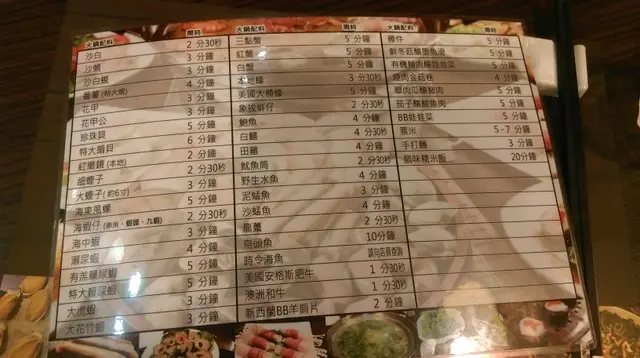 火鍋配料 需時
沙白 2 分30秒
沙蜆 3 分鐘
沙白蜆 3 分鐘
番薯 (特大蜆) 4 分鐘
花甲 3 分鐘
花甲公 3 分鐘
珍珠貝 5 分鐘
特大扇貝 6 分鐘
紅磨鏡 (本地) 2 分鐘
細蟶子 2 分30秒
大蟶子 (約6寸) 3 分鐘
海東風螺 5 分鐘
海蝦仔 (赤米、蝦頭、九蝦) 2 分30秒
海中蝦 3 分鐘
瀨尿蝦 4 分鐘
有羔瀨尿蝦 5 分鐘
特大瀨尿蝦 5 分鐘
大虎蝦 3 分鐘
大花竹蝦 3 分鐘
火鍋配料 需時
三點蟹 5 分鐘
紅蟹 5 分鐘
白蟹 5 分鐘
本地蠔 3 分30秒
美國大桶蠔 5 分鐘
象拔蚌仔 2 分30秒
鮑魚 4 分鐘
白鱔 4 分30秒
田雞 4 分鐘
魷魚筒 2 分30秒
野生水魚 4 分鐘
泥鯭魚 3 分鐘
沙鯭魚 4 分鐘
龍躉 2 分30秒
烏頭魚 10分鐘
時令海魚 請向店員查詢
美國安格斯肥牛 1 分30秒
澳洲和牛 1 分30秒
新西蘭BB羊肩片 2 分鐘
火鍋配料 需時
雞件 5 分鐘
鮮冬菇釀墨魚滑 5 分鐘
有機豬肉釀娃娃菜 5 分鐘
燒肉金菇卷 4 分鐘
翠肉瓜釀豬肉 5 分鐘
茄子釀鯪魚肉 5 分鐘
BB娃娃菜 5 分鐘
粟米 5-7 分鐘
手打麵 3 分鐘
臘味糯米飯 20分鐘